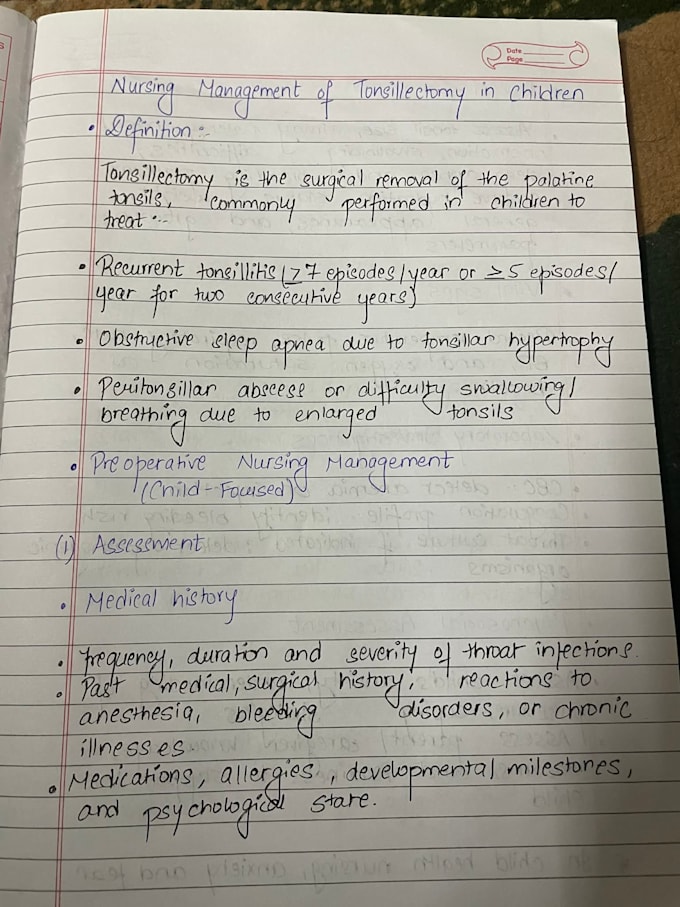 Date
Page
Nursing Management of Tonsillectomy in Children
• Definition :-
Tonsillectomy is the surgical removal of the palatine
tonsils, commonly performed in children to
treat :-
• Recurrent tonsillitis (≥7 episodes/year or ≥5 episodes/
year for two consecutive years)
• Obstructive sleep apnea due to tonsillar hypertrophy
• Peritonsillar abscess or difficulty swallowing/
breathing due to enlarged tonsils
• Preoperative Nursing Management
(Child-Focused)
(1) Assessment
• Medical history
• Frequency, duration and severity of throat infections.
• Past medical, surgical history, reactions to
anesthesia, bleeding disorders, or chronic
illnesses
• Medications, allergies, developmental milestones,
and psychological state.